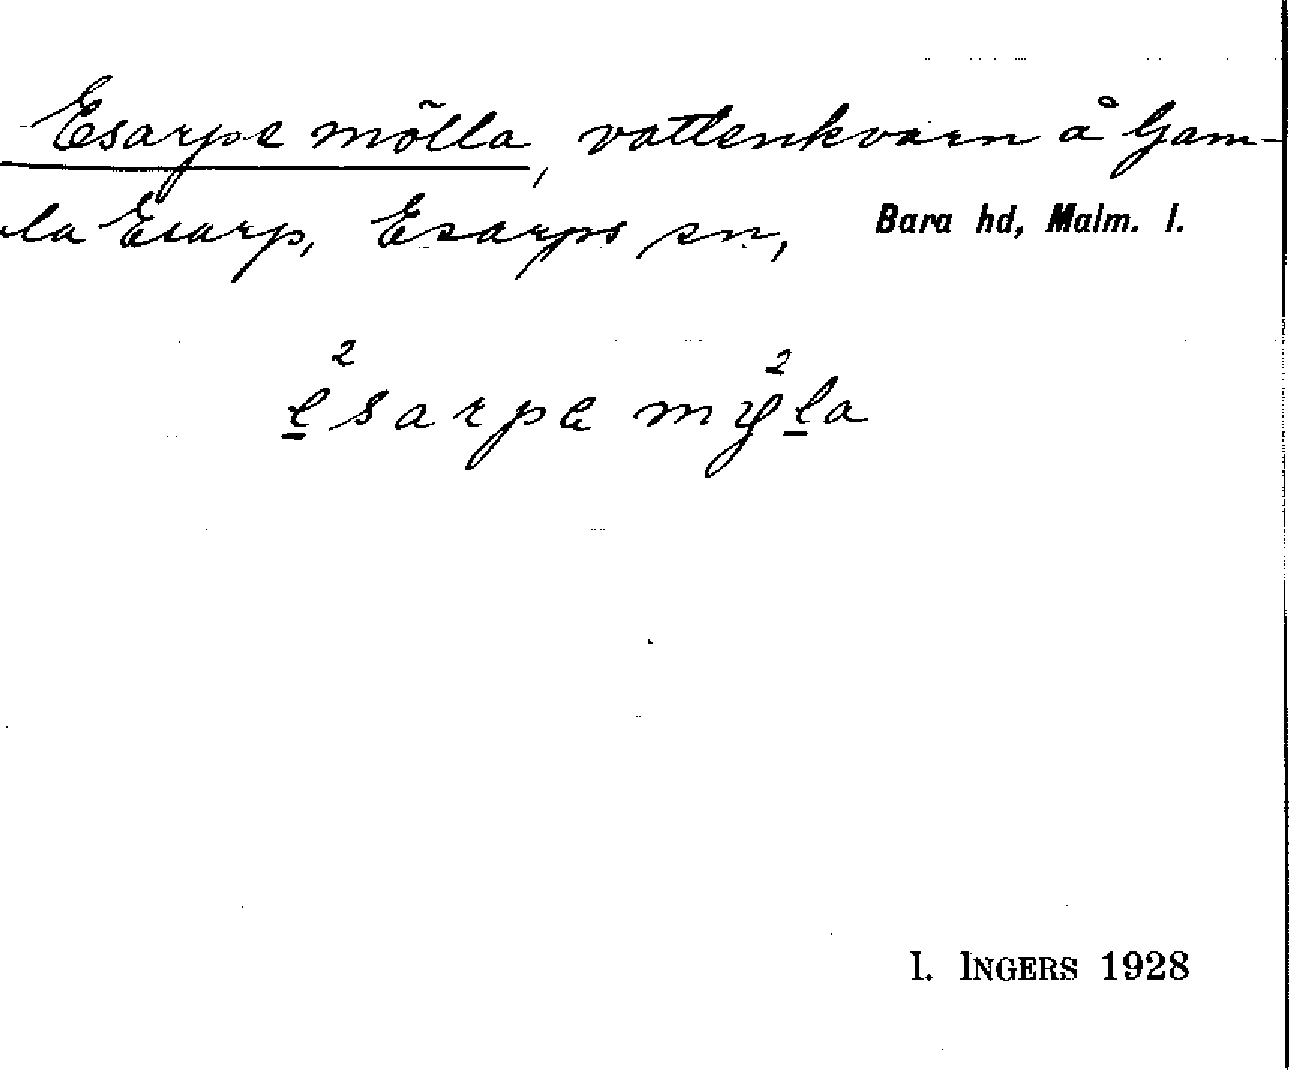 Esarpe mölla, vattenkvarn å Gam-
la Esarp, Esarps sn, Bara hd, Malm. l.
I. INGERS 1928